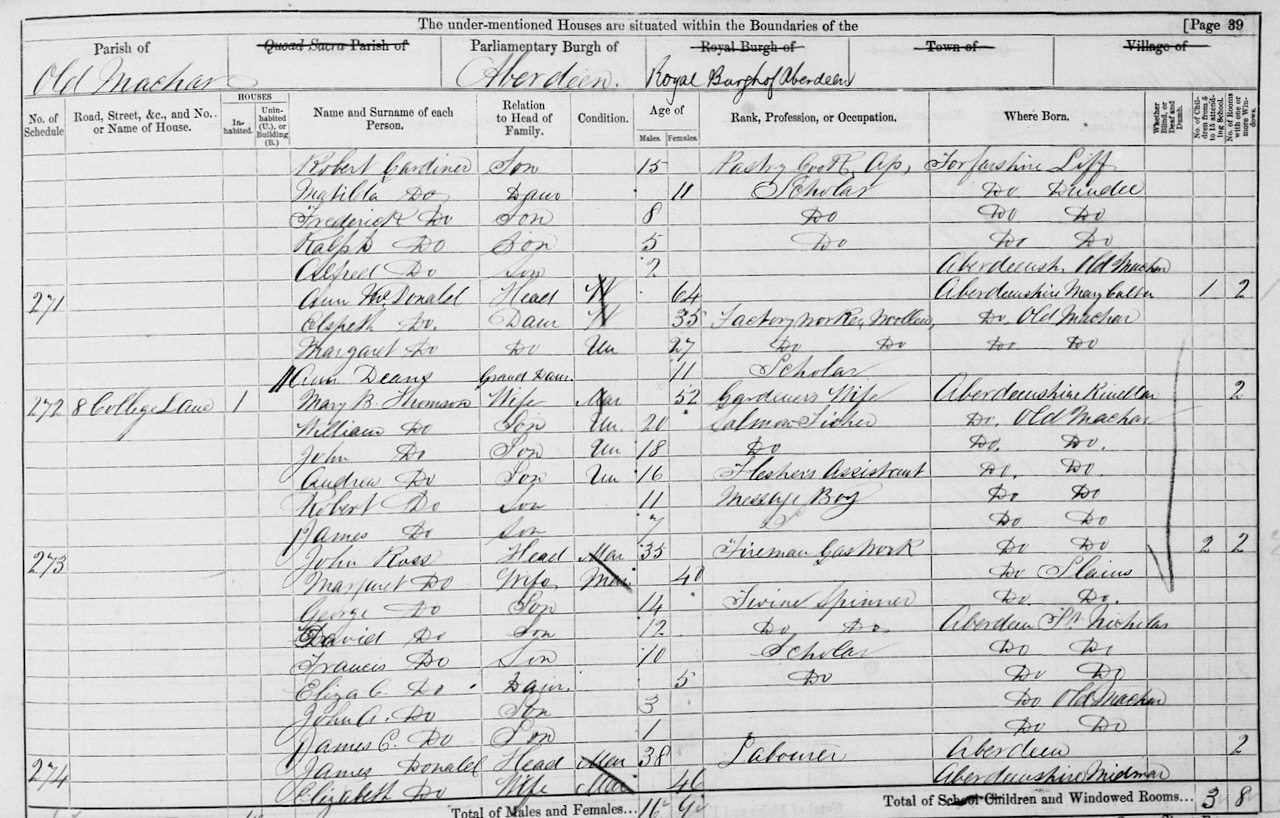 The under-mentioned Houses are situated within the Boundaries of the [Page 39
Parish of Quoad Sacra Parish of Parliamentary Burgh of Royal Burgh of Town of Village of
Old Machar Aberdeen. Royal Burgh of Aberdeen
No. of Schedule Road, Street, &c., and No. or Name of House. HOUSES Inhabited. Uninhabited (U.), or Building (B.) Name and Surname of each Person. Relation to Head of Family. Condition. Age of Males. Females. Rank, Profession, or Occupation. Where Born. Whether Blind, or Deaf and Dumb. No. of Children from 5 to 15 attending School. No. of Rooms with one or more Windows.
Robert Gardiner Son 15 Pastry Cook, Ap, Forfarshire Liff
Matilda Do Daur 11 Scholar Do Dundee
Frederick Do Son 8 Do Do Do
Ralph Do Son 5 Do Do Do
Alfred Do Son 2 Aberdeensh. Old Machar
271 Ann McDonald Head W 64 Aberdeenshire Mary Culter 1 2
Elspeth Do. Daur 35 Factory worker, Woollen, Do. Old Machar
Margaret Do Do Un 27 Do Do Do Do
Ann Deans Grand Daur. 11 Scholar
272 8 College Lane 1 Mary B. Thomson Wife Mar 52 Gardiners Wife Aberdeenshire Kinellar 2
William Do Son Un. 20 Salmon Fisher Do. Old Machar
John Do Son Un 18 Do Do. Do.
Andrew Do Son Un 16 Fleshers Assistant Do. Do
Robert Do Son 11 Message Boy Do Do
James Do Son 7 S Do Do
273 John Ross Head Mar 35 Fireman Gas Work Do Do 2 2
Margaret Do Wife Mar 40 Do Slains
George Do Son 14 Twine Spinner Do. Do.
David Do Son 12 Do, Do Aberdeen St. Nicholas
Francis Do Son 10 Scholar Do Do
Eliza C. Do Daur. 5 Do Do Do
John A. Do Son 3 Do Old Machar
James C. Do Son 1 Do Do
274 James Donald Head Mar 38 Labourer Aberdeen 2
Elizabeth Do Wife Mar 46 Aberdeenshire Midmar
Total of Males and Females... 16 9 Total of School Children and Windowed Rooms... 3 8